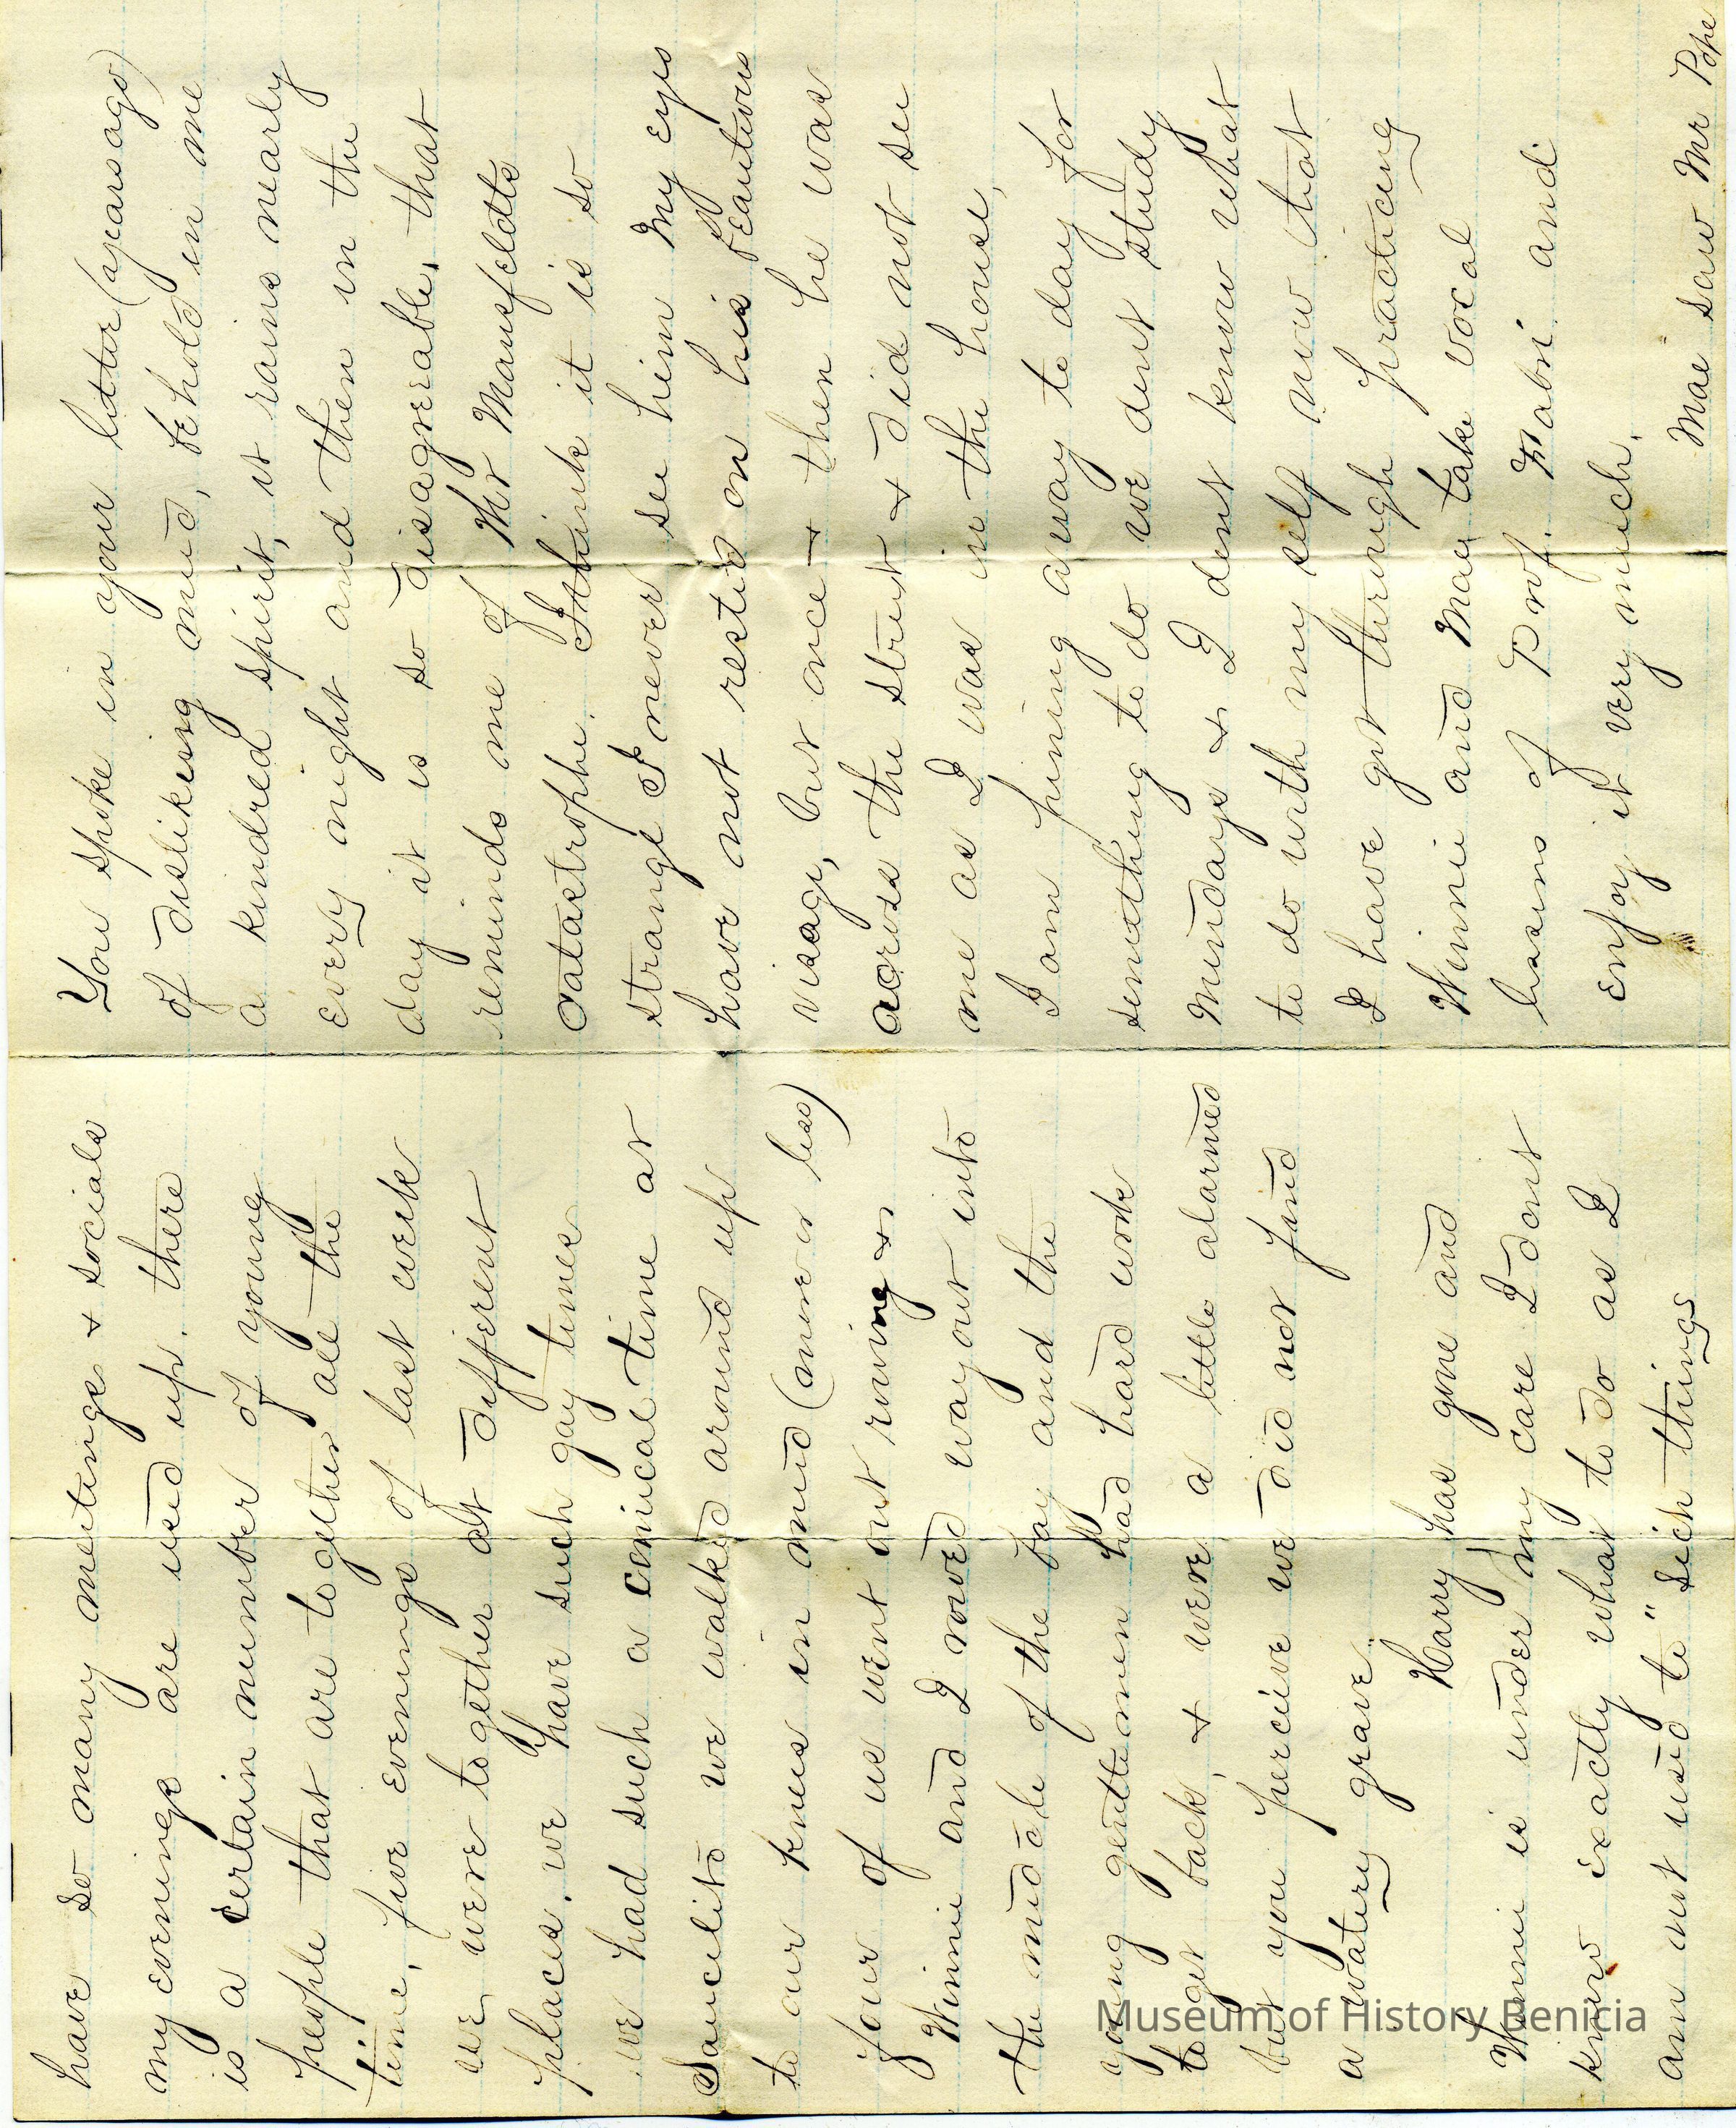 have so many meetings & socials
my evenings are used up. there
is a certain number of young
people that are together all the
time, five evenings of last week
we were together at different
places, we have such gay times
we had such a comical time at
Saucilito we walked around up
to our knees in mud (more or less)
four of us went out rowing &
Winnie and I rowed way out into
the middle of the bay and the
young gentlemen had hard work
to get back, & were a little alarmed
but you perceive we did not find
a watery grave.
Harry has gone and
Winnie is under my care I dont
know exactly what to do as I
am not used to "sich things
You spoke in your letter (years ago)
of disliking mud, behold in me
a kindred spirit, it rains nearly
every night and then in the
day it is so disagreerable, that
reminds me of Mr Mansfeldts
catastrophe. I think it is so
strange I never see him my eyes
have not rested on his beauteous
visage, but once & then he was
across the street & did not see
me as I was in the house,
I am pining away to day for
something to do we dont study
Mondays & I dont know what
to do with my self now that
I have got through practicing
Winnie and Mae take vocal
lessons of Prof. Fabri and
enjoy it very much.
Mae saw Mr Pope
Museum of History Benicia